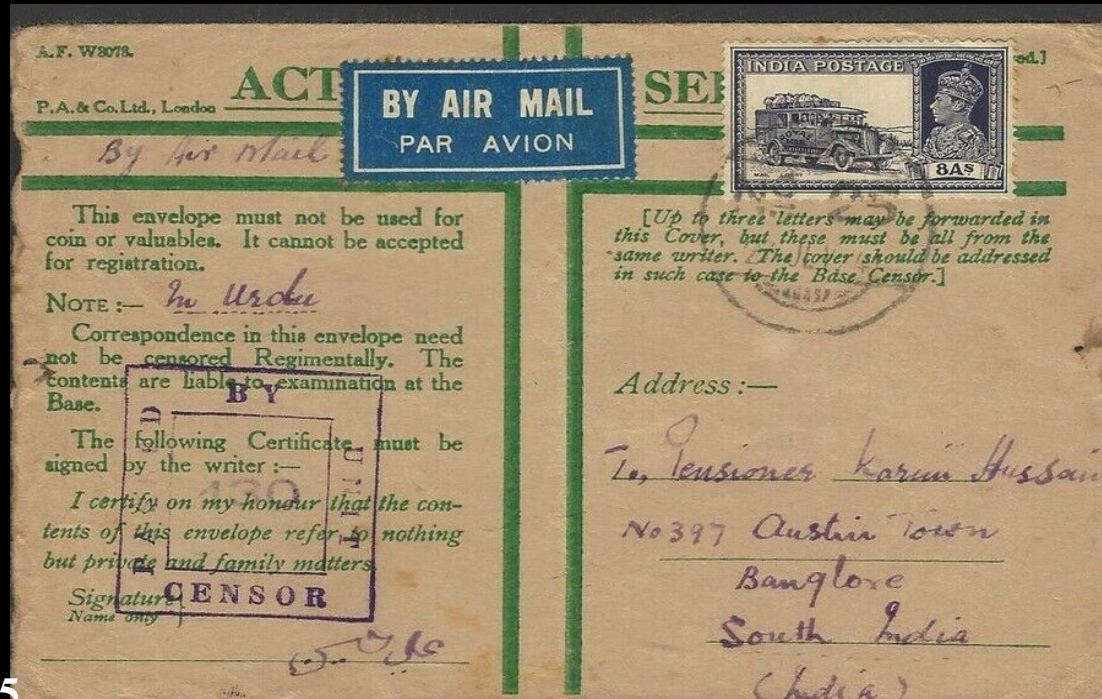 A.F. W3078.
ed.]
P.A. & Co. Ltd., London
ACT
SE
BY AIR MAIL
PAR AVION
INDIA POSTAGE
ROYAL
MAIL LORRY
8As
By Air Mail
This envelope must not be used for
coin or valuables. It cannot be accepted
for registration.
NOTE :— In Urdu
Correspondence in this envelope need
not be censored Regimentally. The
contents are liable to examination at the
Base.
The following Certificate must be
signed by the writer :—
I certify on my honour that the con-
tents of this envelope refer to nothing
but private and family matters
Signature
Name only
BY
UNIT
CENSOR
[Up to three letters may be forwarded in
this Cover, but these must be all from the
same writer. The cover should be addressed
in such case to the Base Censor.]
Address :—
To, Pensioner Karim Hussain
No 397 Austin Town
Banglore
South India
(India)
5